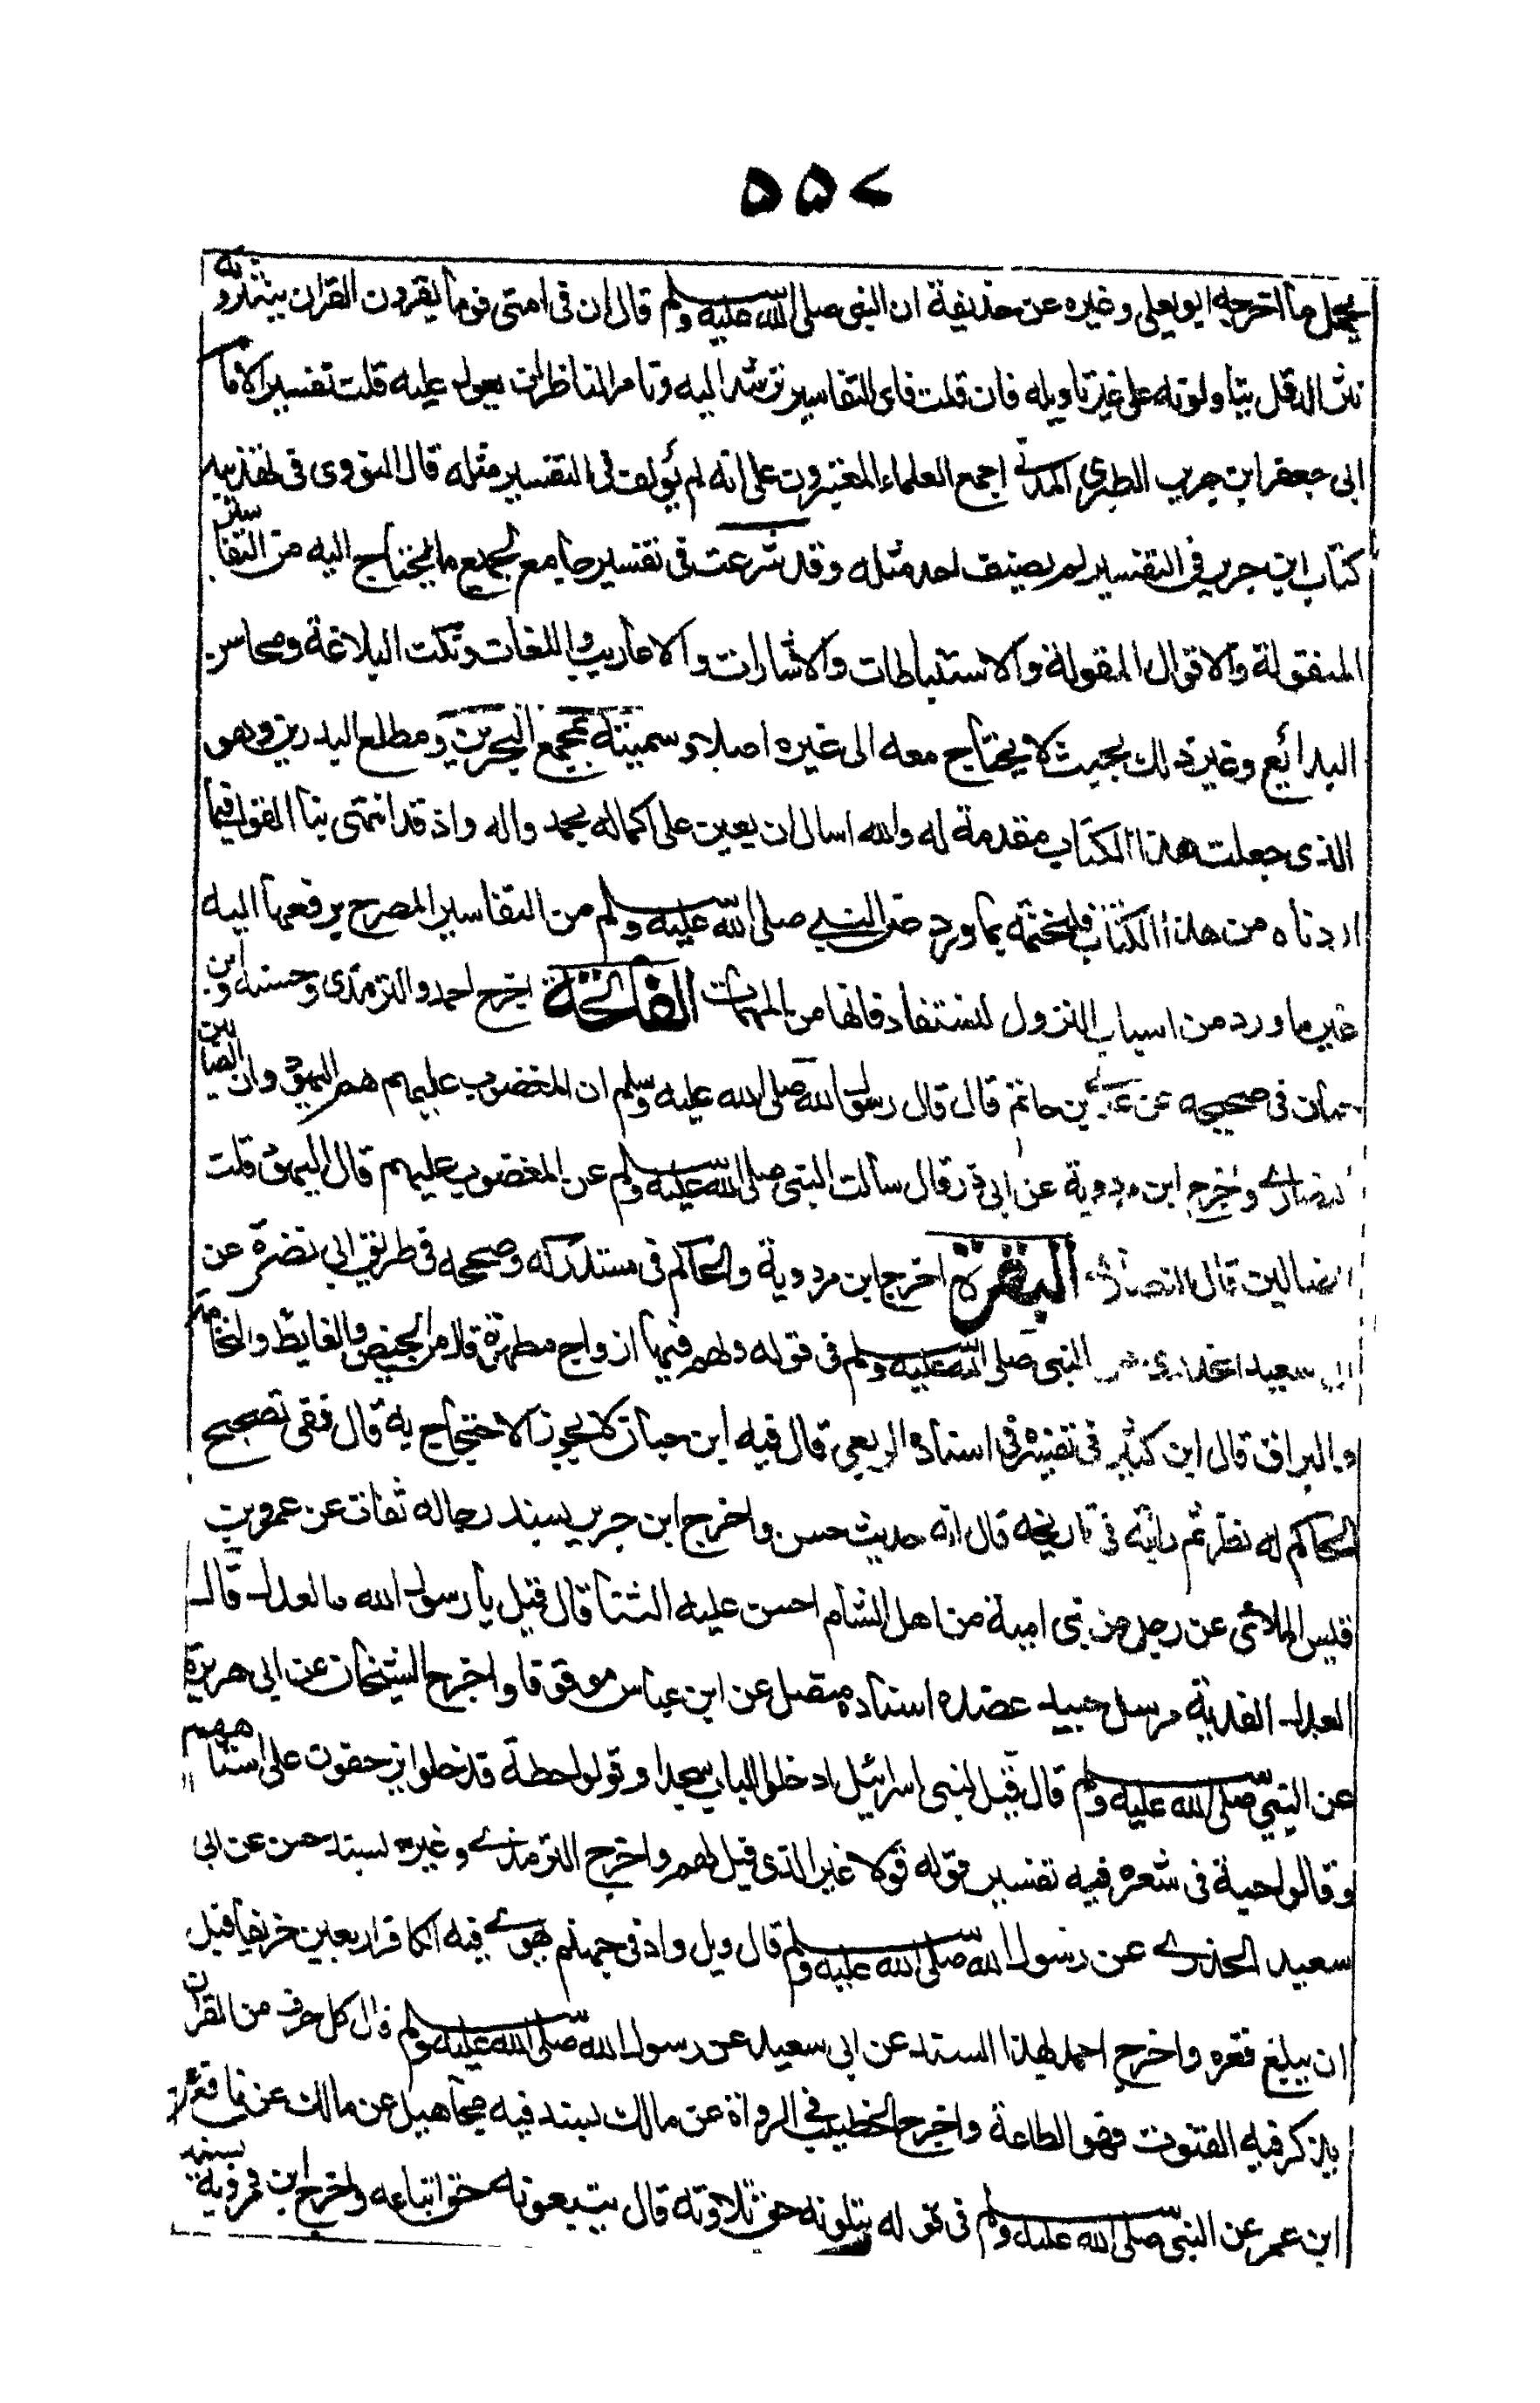 ٥٥٧
يحمل ما اخرجه ابو يعلى وغيره عن حذيفة ان النبى صلى الله عليه وسلم قال ان فى امتى قوما يقرون القران ينثرونه
نثر الدقل يتاولونه على غير تاويله فان قلت فاى التفاسير ترشد اليه وتامر الناظر ان يعول عليه قلت تفسير الامام
ابى جعفر ابن جرير الطبرى الذى اجمع العلماء المعتبرون على انه لم يؤلف فى التفسير مثله قال النووى فى تهذيبه
كتاب ابن جرير فى التفسير لم يصنف احد مثله وقد شرعت فى تفسير جامع لجميع ما يحتاج اليه من التفاسير
المنقولة والاقوال المقولة والاستنباطات والاشارات والاعاريب واللغات ونكت البلاغة ومحاسن
البدائع وغير ذلك بحيث لا يحتاج معه الى غيره اصلا وسميته بمجمع البحرين ومطلع البدرين وهو
الذى جعلت هذا الكتاب مقدمة له والله اسال ان يعين على اكماله بمحمد واله واذ قد انتهى بنا القول فيما
اردناه من هذا الكتاب فلنختمه بما ورد عن النبى صلى الله عليه وسلم من التفاسير المصرح برفعها اليه
غير ما ورد من اسباب النزول لتستفاد فانها من المهمات الفاتحة اخرج احمد والترمذى وحسنه وابن
حبان فى صحيحه عن عدى بن حاتم قال قال رسول الله صلى الله عليه وسلم ان المغضوب عليهم هم اليهود وان الضالين
النصارى واخرج ابن مردوية عن ابى ذر قال سالت النبى صلى الله عليه وسلم عن المغضوب عليهم قال اليهود قلت
الضالين قال النصارى البقرة اخرج ابن مردوية والحاكم فى مستدركه وصححه فى طريق ابى نضرة عن
ابى سعيد الخدرى عن النبى صلى الله عليه وسلم فى قوله ولهم فيها ازواج مطهرة قال من الحيض والغايط والنخامة
والبزاق قال ابن كثير فى تفسيره فى اسناده الربعى قال فيه ابن حبان لا يجوز الاحتجاج به قال ففى تصحيح
الحاكم له نظر ثم رايته فى تاريخه قال انه حديث حسن واخرج ابن جرير بسند رجاله ثقات عن عمرو بن
قيس الملائى عن رجل من بنى امية من اهل الشام احسن عليه الثنا قال قيل يا رسول الله ما العدل قال
العدل الفدية مرسل جيد عضده اسناده متصل عن ابن عباس موقوفا واخرج الشيخان عن ابى هريرة
عن النبى صلى الله عليه وسلم قال قيل لبنى اسرائيل ادخلوا الباب سجدا وقولوا حطة فدخلوا يزحفون على استاههم
وقالوا حبة فى شعرة فيه تفسير قوله قولا غير الذى قيل لهم واخرج الترمذى وغيره بسند حسن عن ابى
سعيد الخدرى عن رسول الله صلى الله عليه وسلم قال ويل واد فى جهنم يهوى فيه الكافر اربعين خريفا قبل
ان يبلغ قعره واخرج احمد بهذا السند عن ابى سعيد عن رسول الله صلى الله عليه وسلم قال كل حرف من القران
يذكر فيه القنوت فهو الطاعة واخرج الخطيب فى الرواة عن مالك بسند فيه مجاهيل عن مالك عن نافع عن
ابن عمر عن النبى صلى الله عليه وسلم فى قوله يتلونه حق تلاوته قال يتبعونه حق اتباعه واخرج ابن مردوية بسند